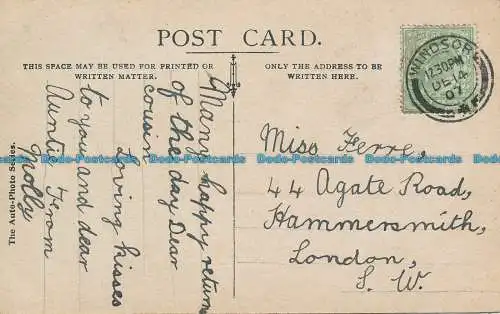 POST CARD.
THIS SPACE MAY BE USED FOR PRINTED OR
WRITTEN MATTER.
ONLY THE ADDRESS TO BE
WRITTEN HERE.
WINDSOR
12.30PM
DE 14
07
Many happy returns
of the day Dear
cousin
Loving kisses
to you and dear
Auntie From
Molly
Miss Ferre,
44 Agate Road,
Hammersmith,
London,
S. W.
The Auto-Photo Series.
Dodo-Postcards Dodo-Postcards Dodo-Postcards Dodo-Postcards Dodo-Postcards